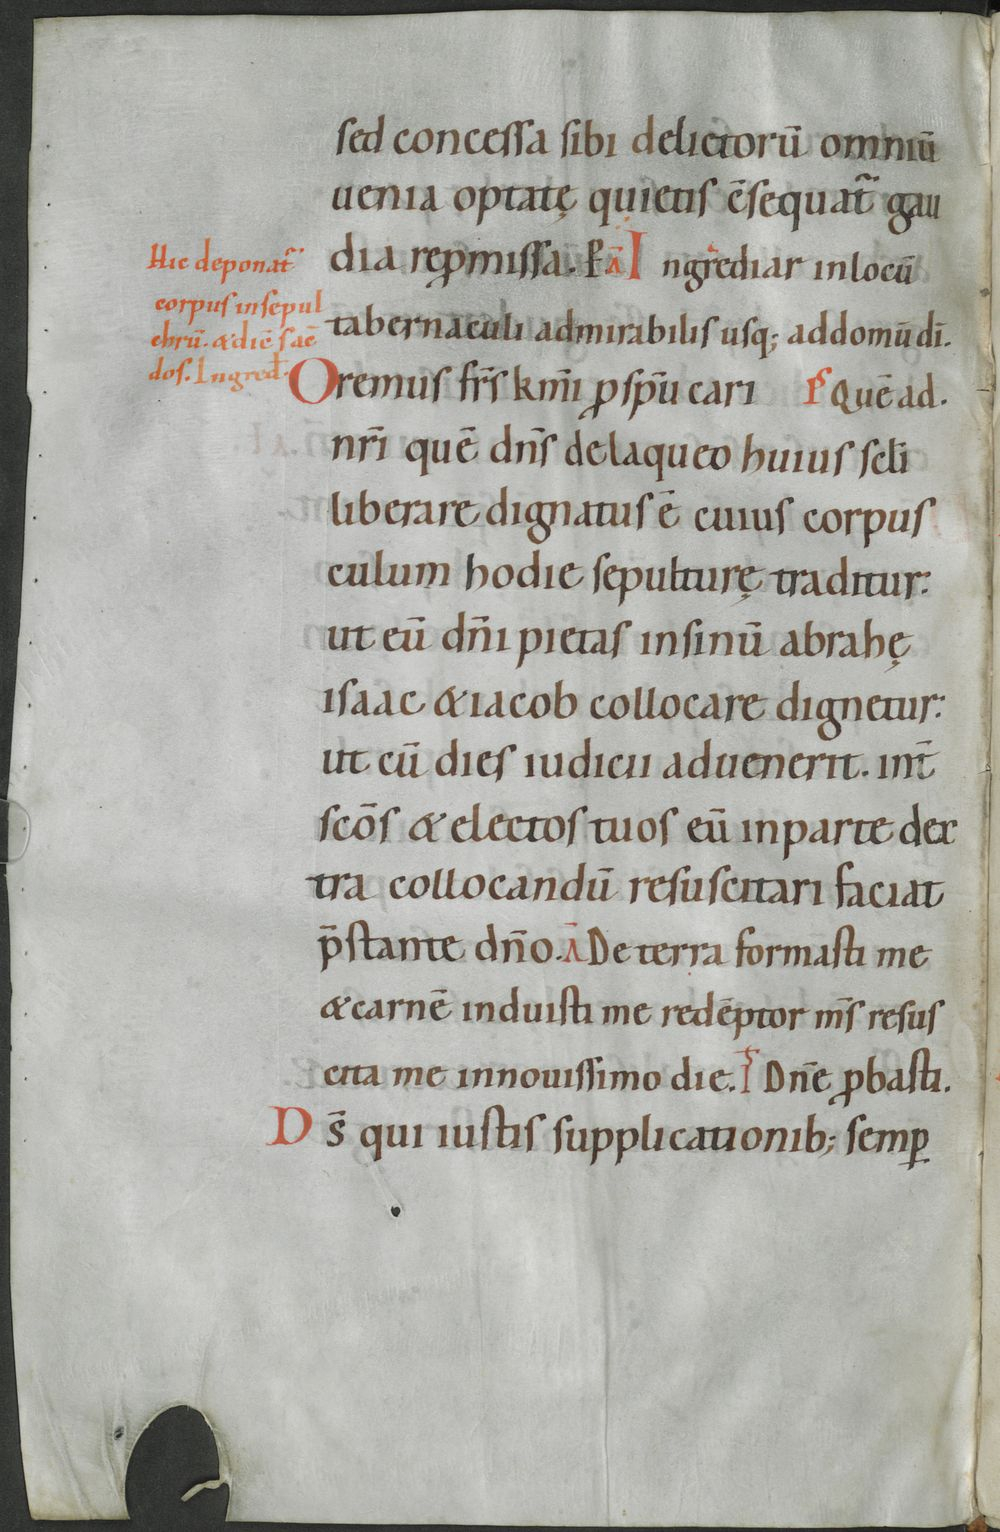 sed concessa sibi delictorū omniū
uenia optatę quietis c̄sequat̄ gau
dia repmissa. P Ā Ingrediar in locū
tabernaculi admirabilis usq; ad domū dī.
Hic deponat̄
corpus in sepul
chrū. & dic̄ sac̄
dos. Ingred̄.
Oremus fr̄s km̄i ꝓ spū cari Ps Quē ad.
nr̄i quē dn̄s de laqueo huius scl̄i
liberare dignatus ē cuius corpus
culum hodie sepulturę traditur:
ut eū dn̄i pietas in sinū abrahę
isaac & iacob collocare dignetur:
ut cū dies iudicii aduenerit. int̄
scōs & electos tuos eū in parte dex
tra collocandū resuscitari faciat
p̄stante dn̄o. Ā De terra formasti me
& carnē induisti me redēptor m̄s resus
cita me in nouissimo die. Ps Dn̄e ꝓbasti.
Ds̄ qui iustis supplicationib; semp̱